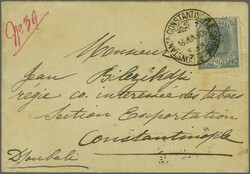 No 39
CONSTANTINOPLE
Monsieur
Jean
regie co. interessée des tabacs
Section Exportation
Constantinople
Djoubali